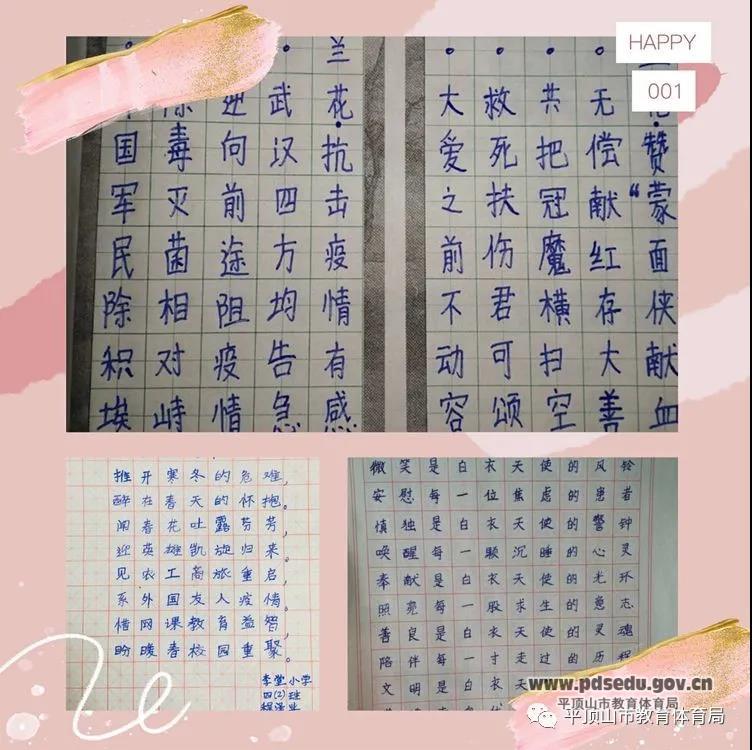 HAPPY
001
兰花·抗击疫情有感
武汉四方均告急
迎向前途阻疫情
除毒灭菌相对峙
国军民除积埃
花·赞“蒙面侠献血
无偿献红存大善
共把冠魔横扫空
救死扶伤君可颂
大爱之前不动容
推开寒冬的危难，
醉在春天的怀抱。
闻春花吐露芬芳，
迎英雄凯旋归来。
见农工商旅重启，
系外国友人疫情。
惜网课教育益智，
盼暖春校园重聚。
李堂小学
四(2)班
微笑是白衣天使的风铃
安慰每一位焦虑的患者
慎独是白衣天使的警钟
唤醒每一颗沉睡的心灵
奉献是白衣天使的光环
照亮每一股求生的意志
善良是白衣天使的灵魂
陪伴每一寸走过的历程
文明是白衣天
www.pdsedu.gov.cn
平顶山市教育体育局
平顶山市教育体育局